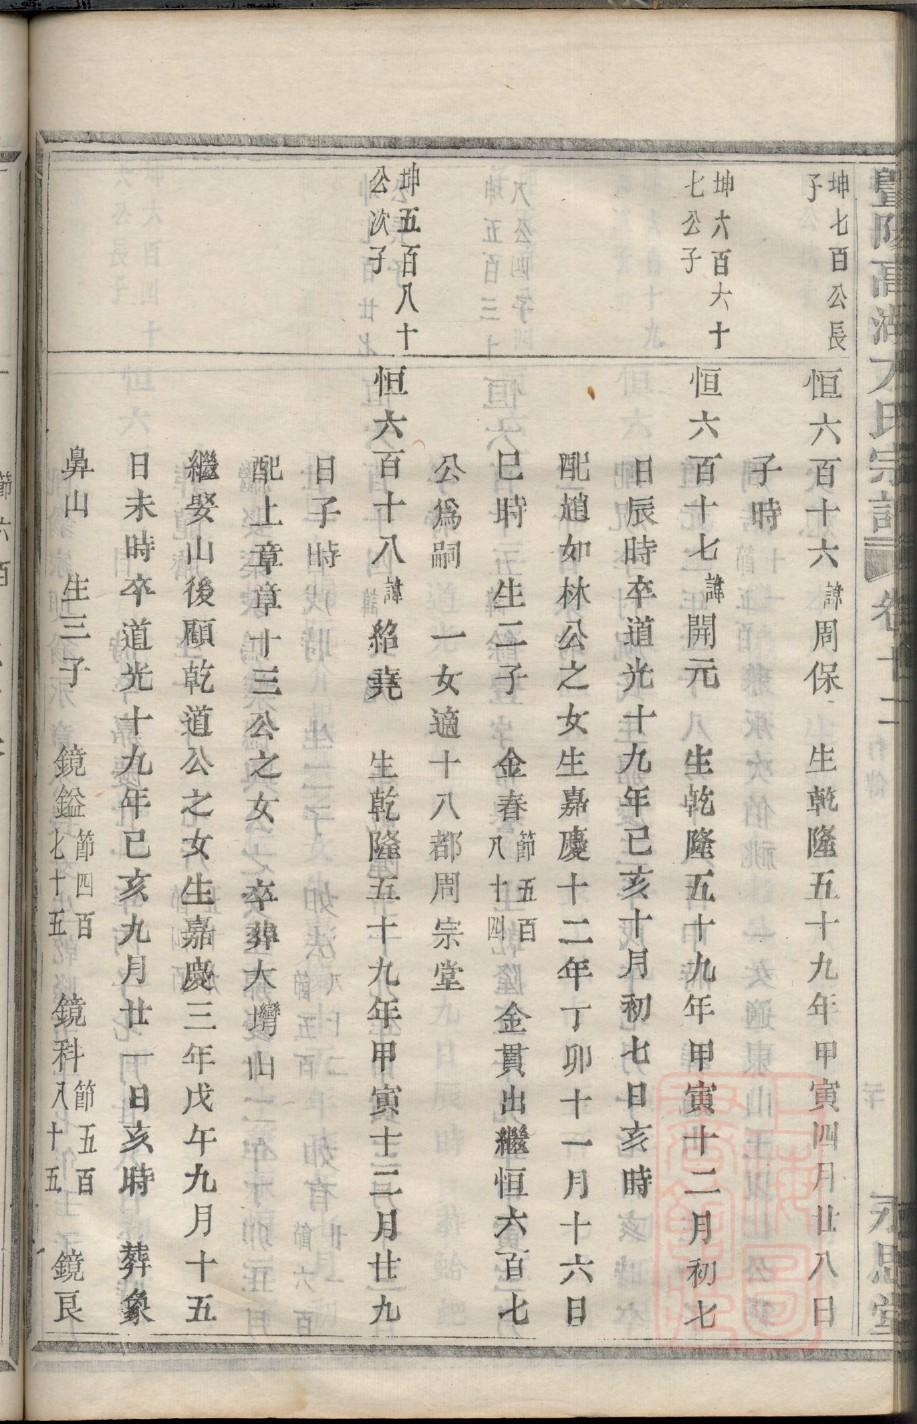 暨陽高湖方氏宗譜 卷十二 永思堂
坤七百公長
子
恒六百十六諱周保 生乾隆五十九年甲寅四月廿八日
子時
坤六百六十
七公子
恒六百十七諱開元 生乾隆五十九年甲寅十二月初七
日辰時卒道光十九年己亥十月初七日亥時
配趙如林公之女生嘉慶十二年丁卯十一月十六日
巳時 生二子 金春節五百八十四 金貫出繼恒六百七
公爲嗣 一女適十八都周宗堂
坤五百八十
公次子
恒六百十八諱紹堯 生乾隆五十九年甲寅十二月廿九
日子時
配上章章十三公之女 卒葬大塆山
繼娶山後顧乾道公之女生嘉慶三年戊午九月十五
日未時卒道光十九年己亥九月廿一日亥時 葬象
鼻山 生三子 鏡鎰節四百七十五 鏡科節五百八十五 鏡良